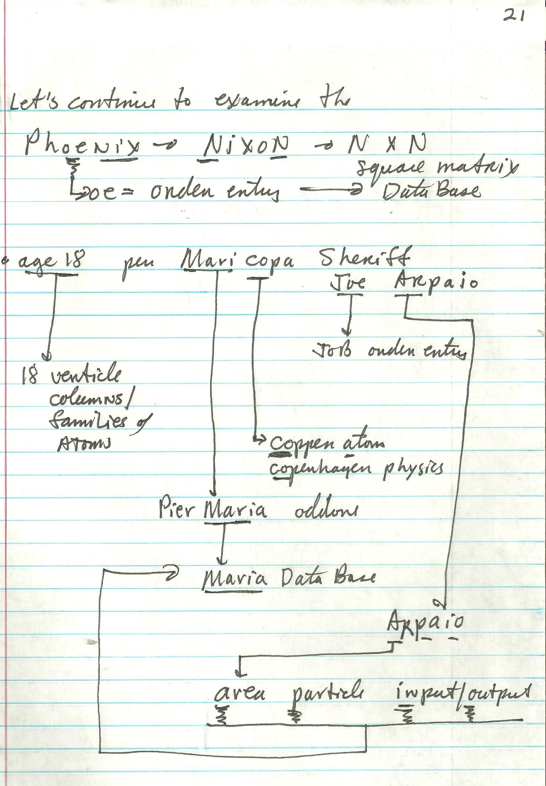 21
Let's continue to examine the
Phoenix → Nixon → N x N
square matrix
oe = order entry → Data Base
• age 18 per Maricopa Sheriff
Joe Arpaio
JOB order entry
18 verticle
columns/
families of
Atoms
Copper atom
copenhagen physics
Pier Maria oddons
Maria Data Base
Arpaio
area particle input/output